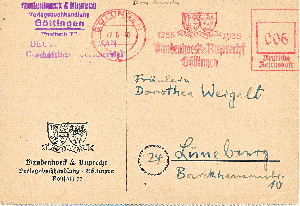 Vandenhoeck & Ruprecht
Verlagsbuchhandlung
Göttingen
Postfach 77
GÖTTINGEN
1735 1935
Vandenhoeck & Ruprecht
Göttingen
006
Deutsche
Reichspost
Fräulein
Dorothea Weigelt
24
Lüneburg
10
Vandenhoeck & Ruprecht
Verlagsbuchhandlung · Göttingen
Postfach 77